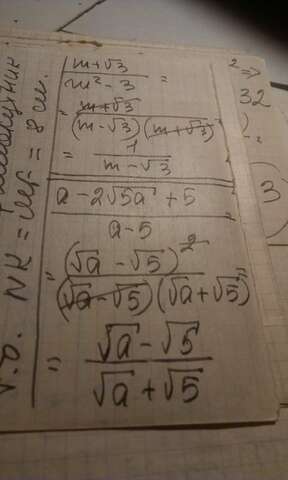 m+√3 / m² - 3 =
= m+√3 / (m-√3)(m+√3)
= 1 / m-√3
a - 2√5a + 5 / a - 5 =
= (√a - √5)² / (√a - √5)(√a + √5) =
= √a - √5 / √a + √5
NK = 8 см.
² =>
32
3